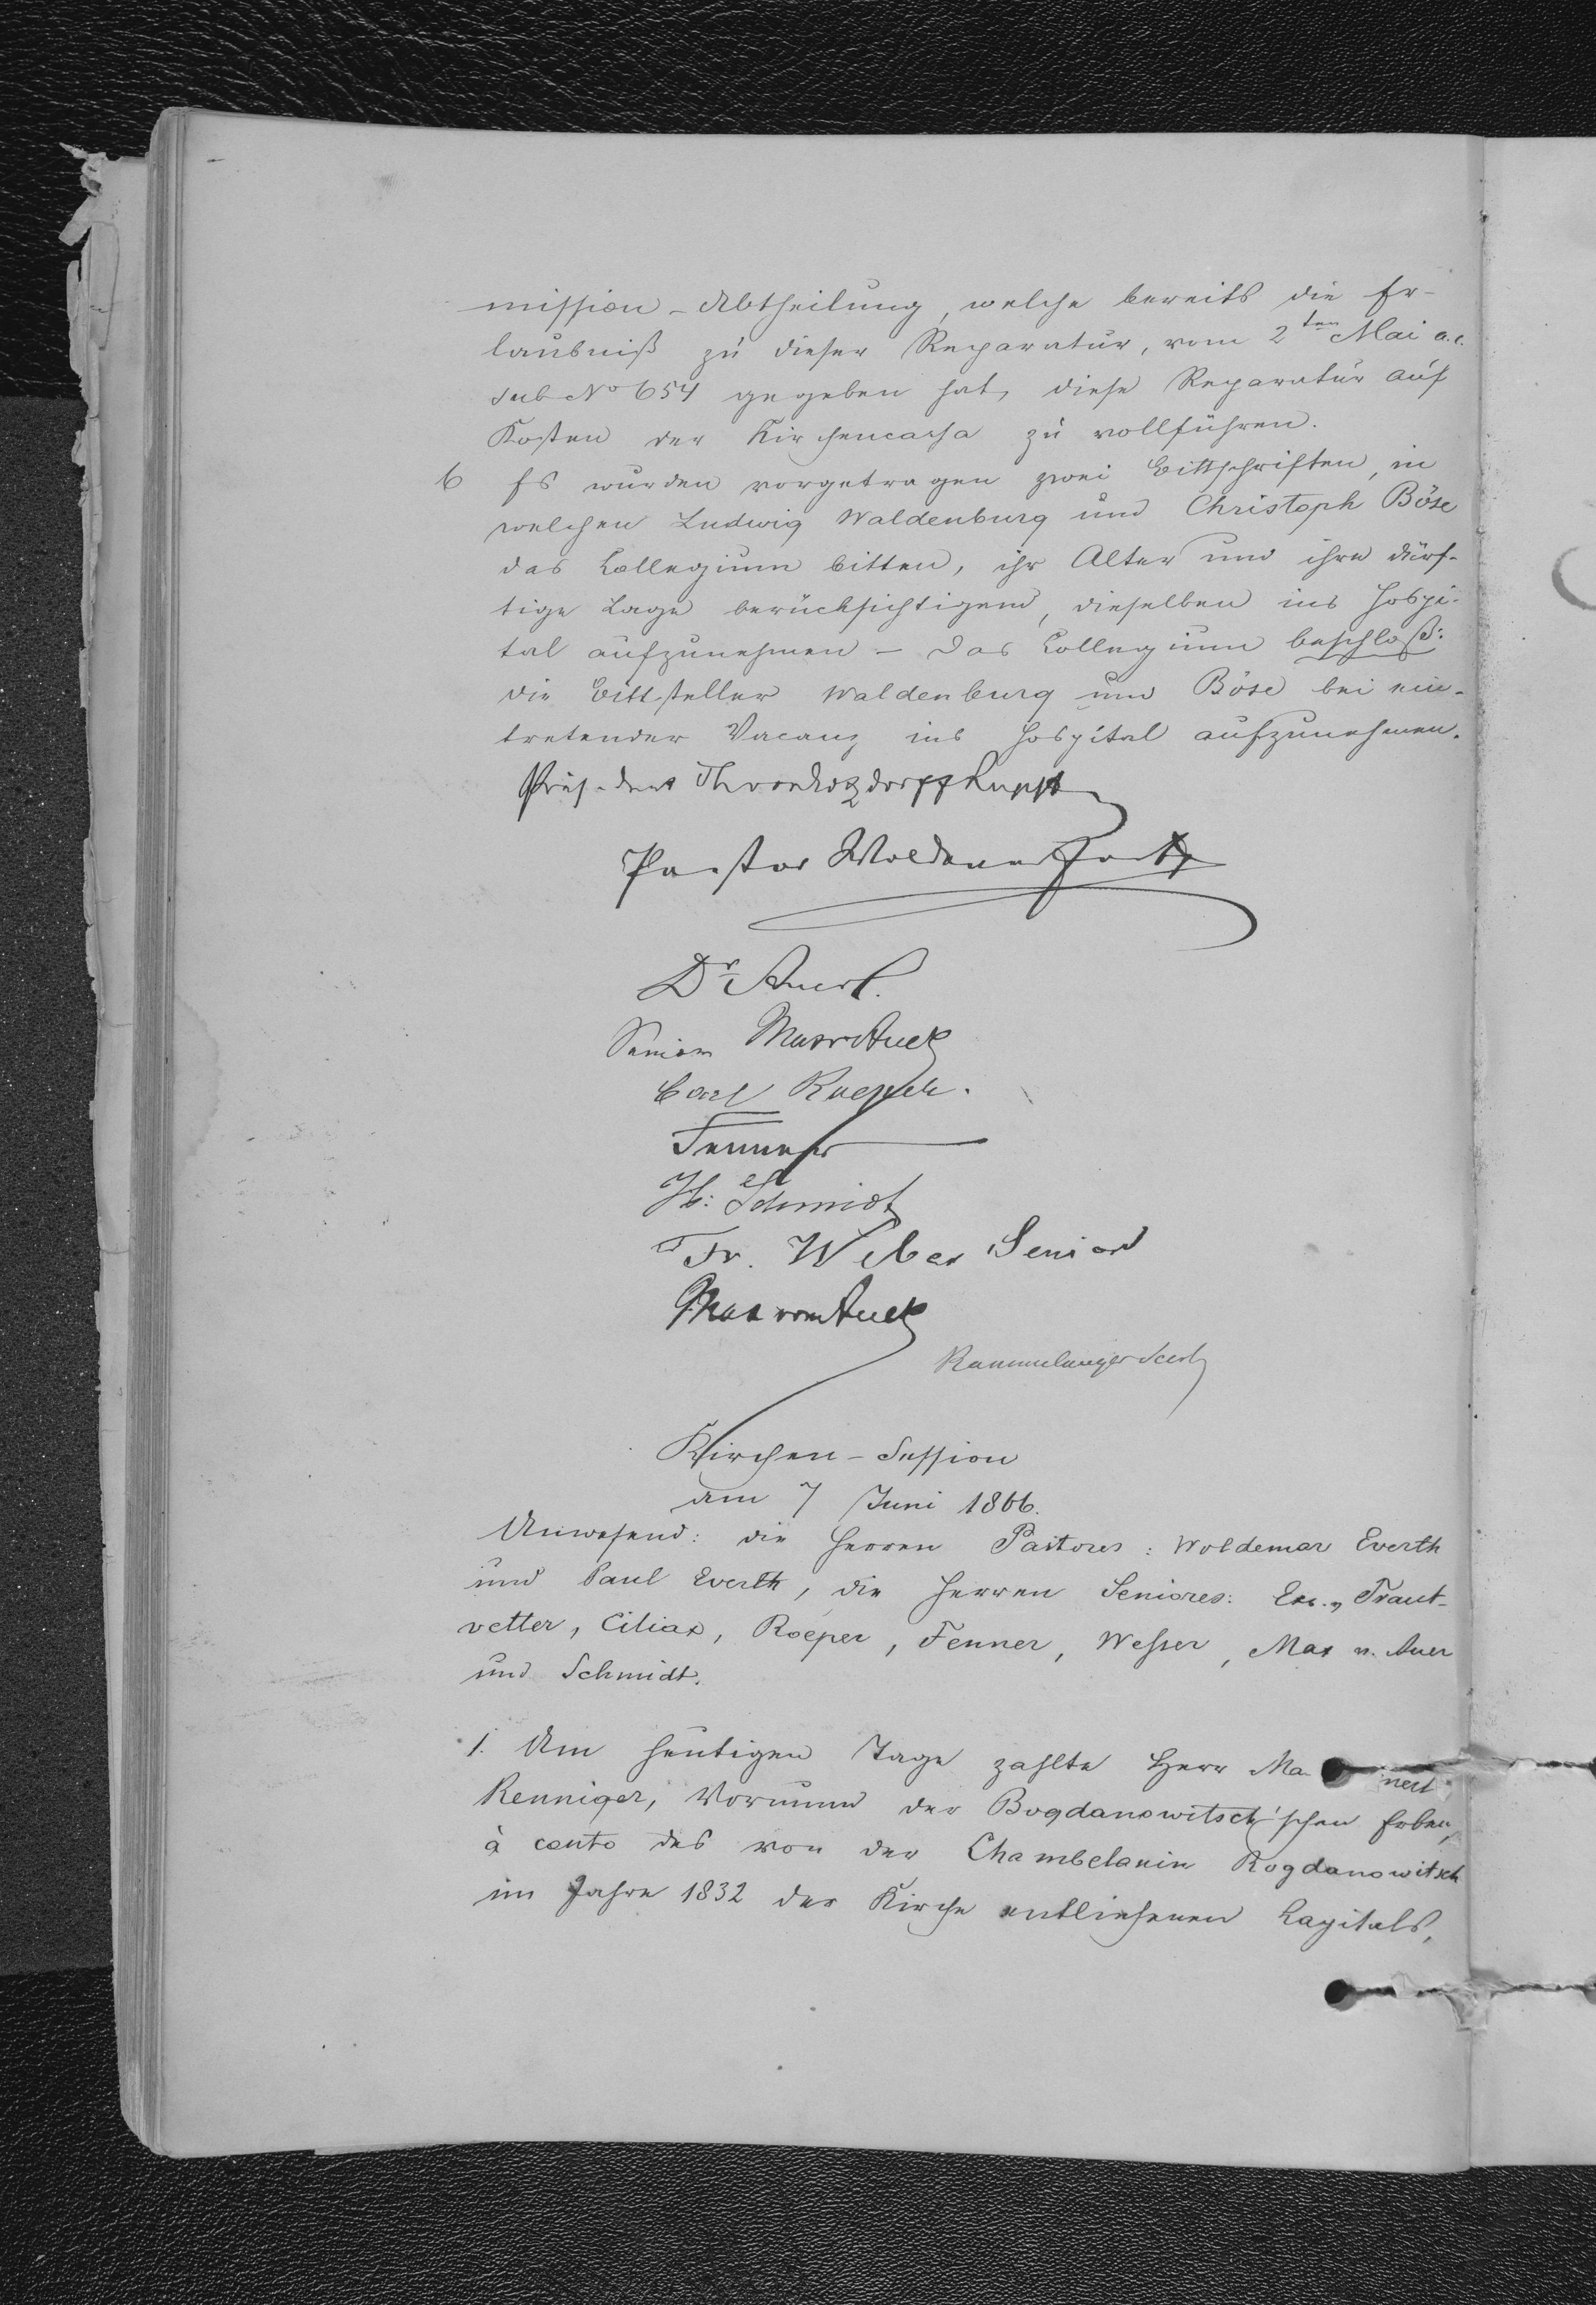 mission-Abtheilung, welche bereits die Er-
laubniß zu dieser Reparatur, vom 2ten Mai a.c.
sub No 654 gegeben hat, diese Reparatur auf
Kosten der Kirchencassa zu vollführen.
6 Es wurden vorgetragen zwei Bittschriften, in
welchen Ludwig Waldenburg und Christoph Böse
das Collegium bitten, ihr Alter und ihre dürf-
tige Lage berücksichtigend, dieselben ins Hospi-
tal aufzunehmen – Das Collegium beschloß:
die Bittsteller Waldenburg und Böse bei ein-
tretender Vacanz ins Hospital aufzunehmen.
Präsident
Pastor Woldemar Everth
Dr Auer
Senior Max v Auer
Carl Roeper.
Fenner
H: Schmidt
Fr. Weber Senior
Max von Auer
Kirchen-Session
am 7 Juni 1866.
Anwesend: die Herren Pastores: Woldemar Everth
und Paul Everth, die Herren Seniores: Exc. Traut-
vetter, Ciliax, Roeper, Fenner, Wesser, Max v. Auer
und Schmidt.
1. Am heutigen Tage zahlte Herr
Renniger, Vormund der Bogdanowitsch'schen Erben,
à conto des von der Chambelanin Bogdanowitsch
im Jahre 1832 der Kirche entliehenen Kapitals,